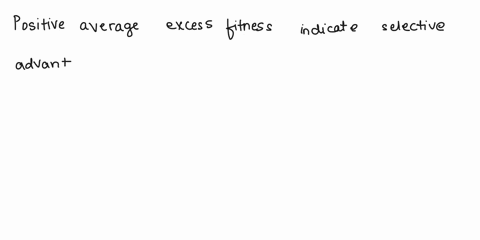 Positive average excess fitness indicate selective
advant